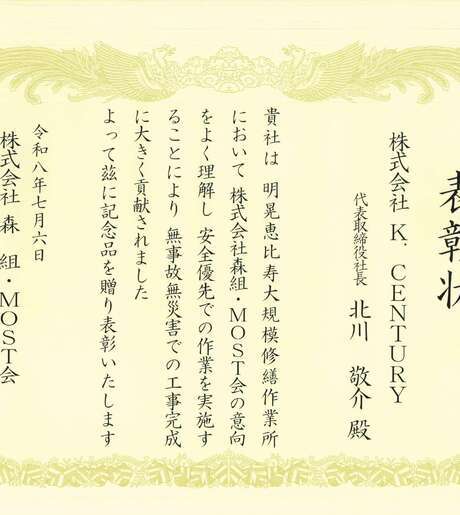 表彰状
株式会社 K. CENTURY
代表取締役社長 北川 敬介 殿
貴社は 明晃恵比寿大規模修繕作業所
において 株式会社森組・MOST会の意向
をよく理解し 安全優先での作業を実施す
ることにより 無事故無災害での工事完成
に大きく貢献されました
よって茲に記念品を贈り表彰いたします
令和八年七月六日
株式会社 森 組・MOST会